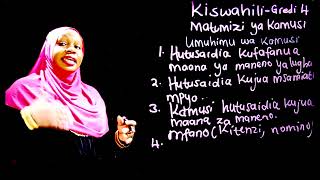 Kiswahili-Gredi 4
Matumizi ya Kamusi
Umuhimu wa Kamusi
1. Hutusaidia kufafanua
maana ya maneno ya lugha
2. Hutusaidia kujua msamiati
mpya.
3. Kamusi hutusaidia kujua
maana za maneno.
mfano (Kitenzi, nomino)
4.